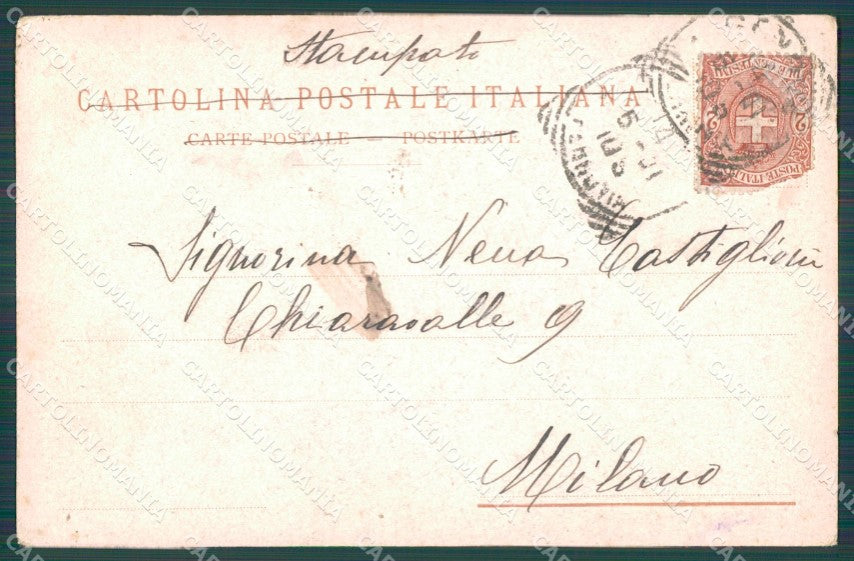 Stampato
CARTOLINA POSTALE ITALIANA
CARTE POSTALE — POSTKARTE
Signorina Nena Castiglioni
Chiaravalle 9
Milano
POSTE ITALI
CARTOLINOMANIA